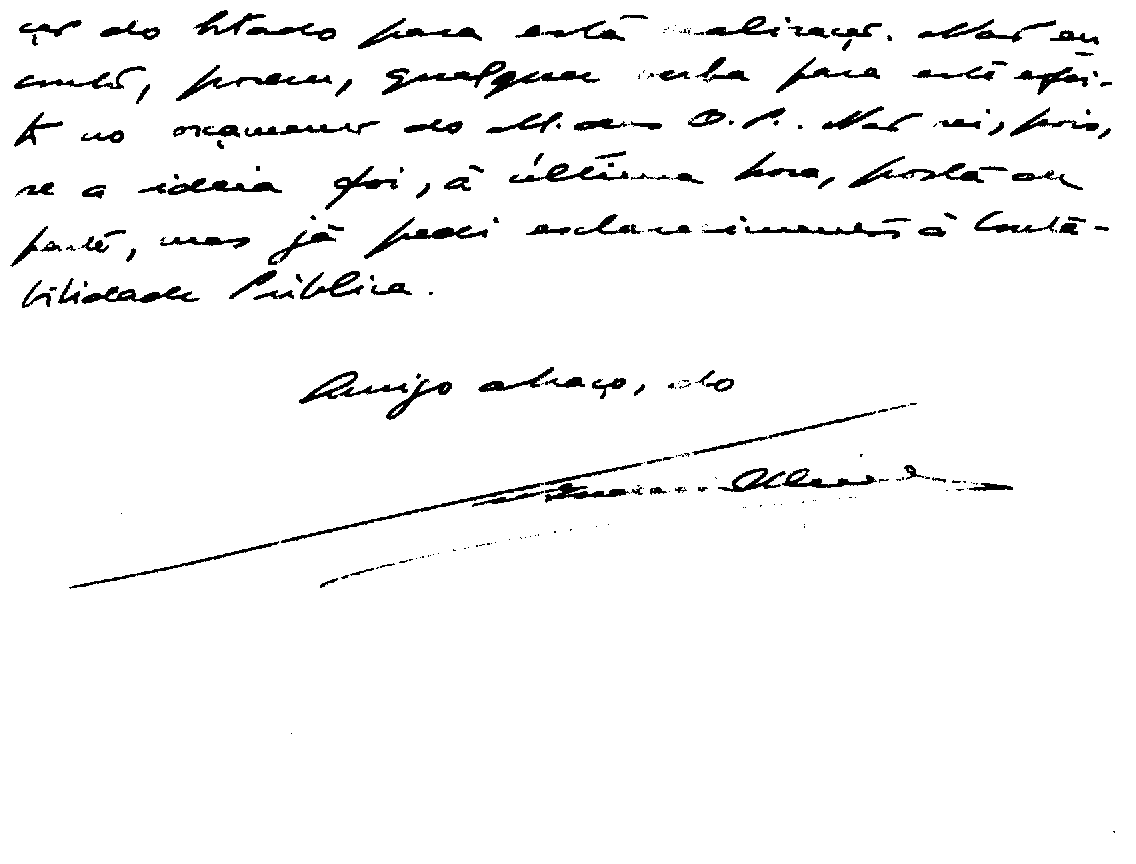 ção do Estado para esta realização. Não en
contro, porem, qualquer verba para este efei-
to no orçamento do M. das O. P. Não sei, pois,
se a ideia foi, à última hora, posta de
parte, mas já pedi esclarecimentos à Conta-
bilidade Pública.
Amigo abraço, do